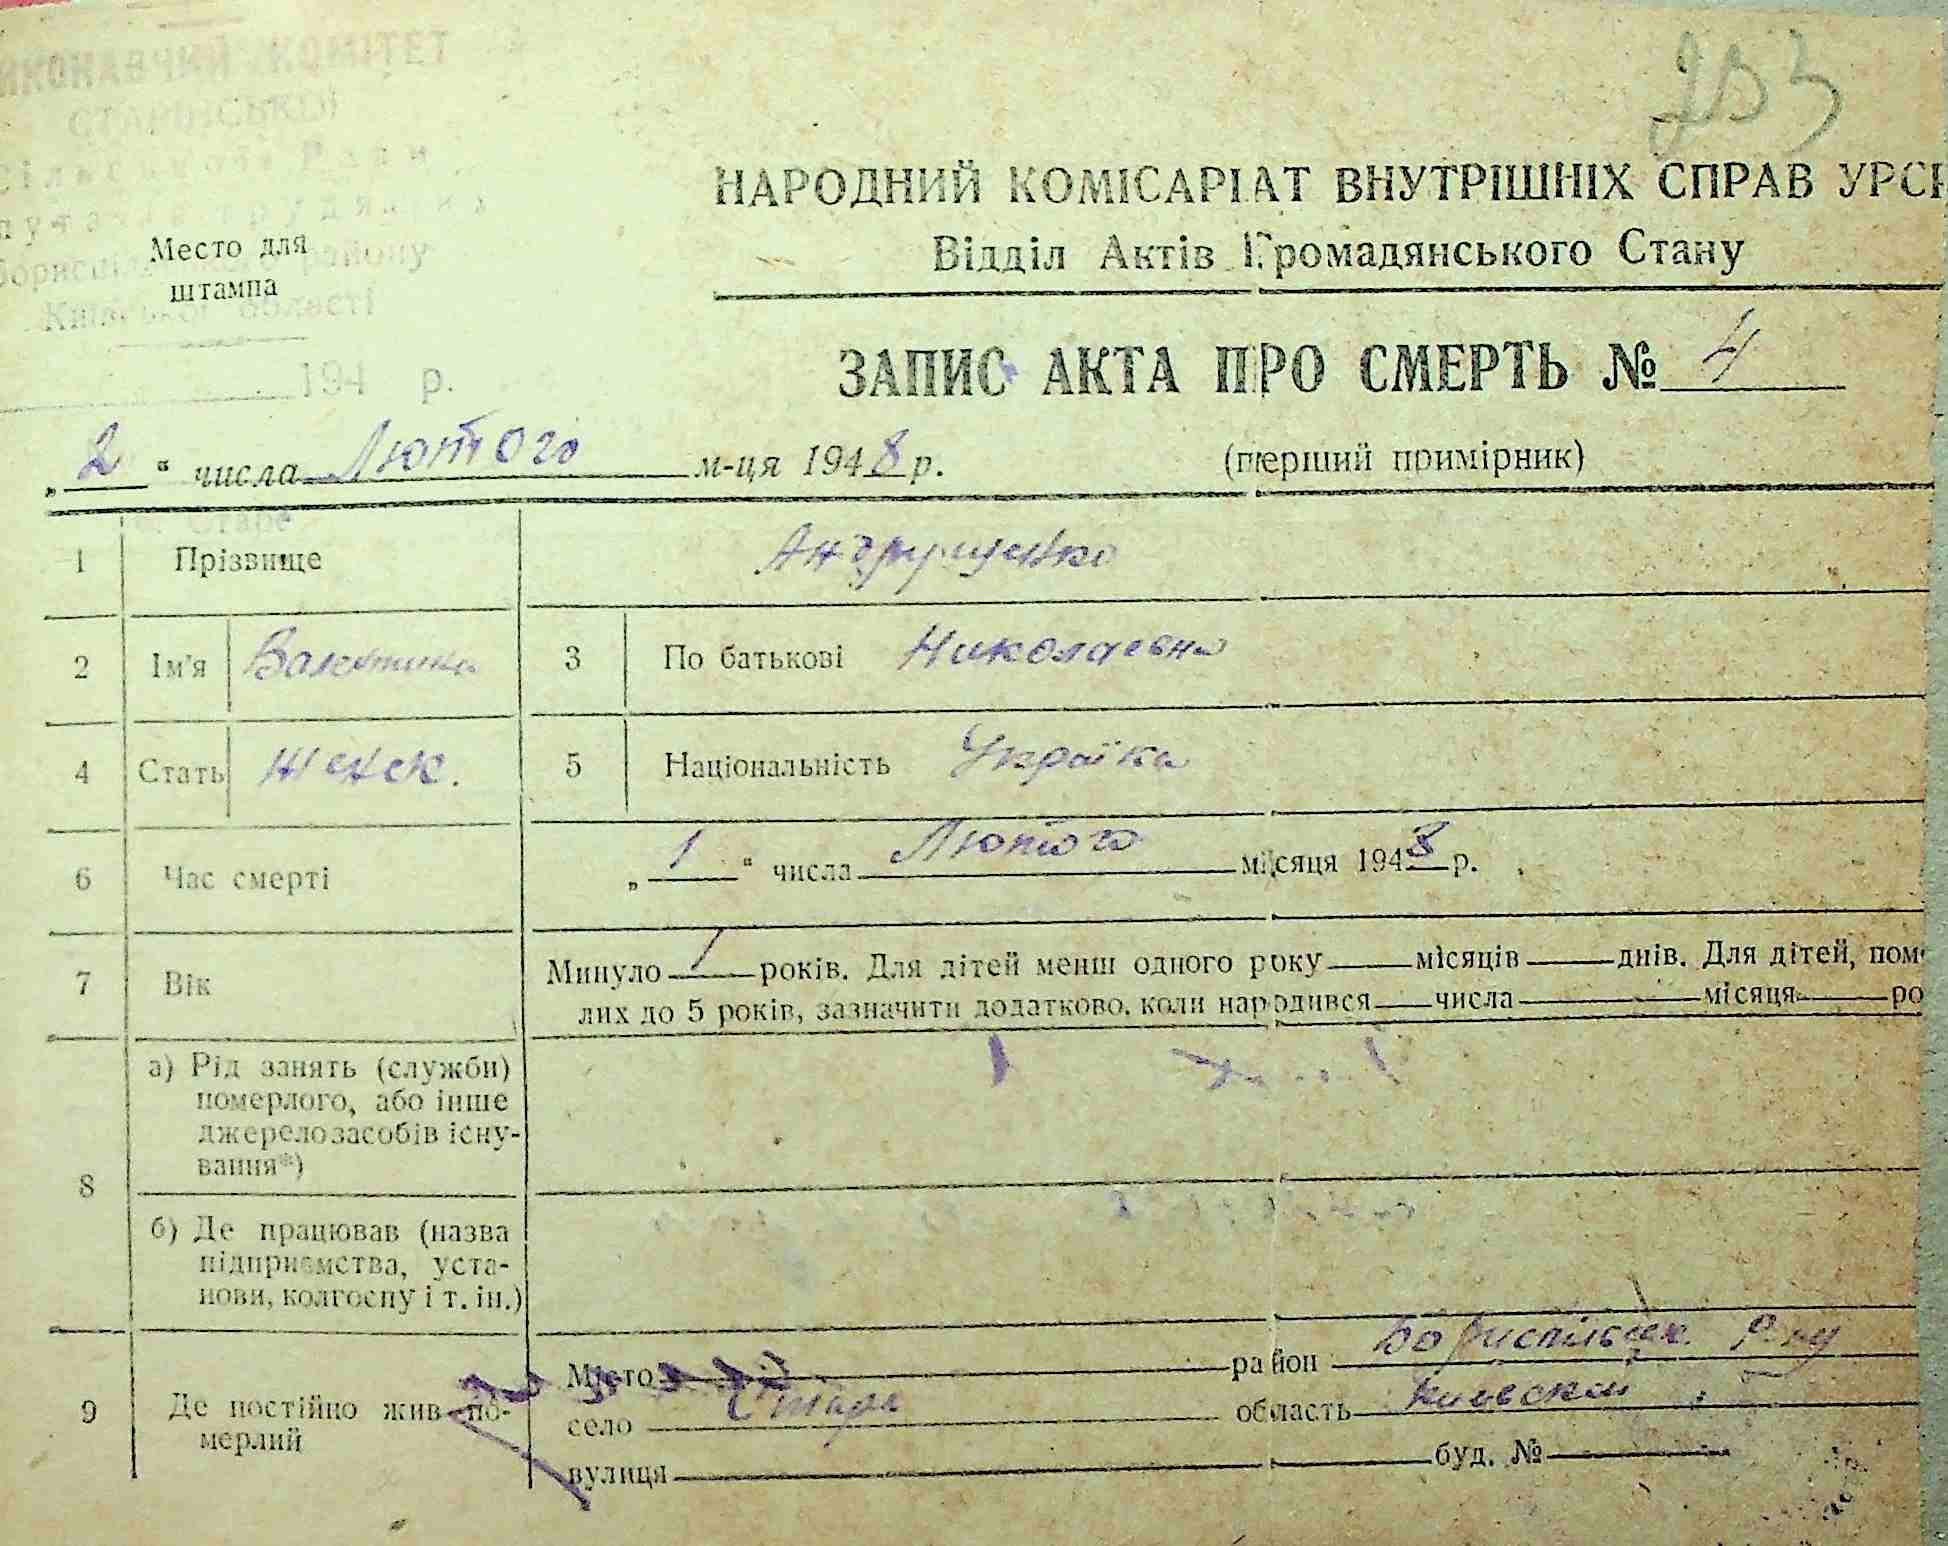 233
ИКОНАВЧИЙ КОМІТЕТ
СТАРІНСЬКОЇ
сільської Ради
путатів трудящих
Бориспільського району
Київської області
Место для
штампа
194 р.
НАРОДНИЙ КОМІСАРІАТ ВНУТРІШНІХ СПРАВ УРСР
Відділ Актів Громадянського Стану
ЗАПИС АКТА ПРО СМЕРТЬ № 4
„2“ числа Лютого м-ця 1948 р.
(перший примірник)
с. Старе
1 Прізвище Андрущенко
2 Ім'я Валентина 3 По батькові Николаевна
4 Стать женск. 5 Національність Українка
6 Час смерті „1“ числа Лютого місяця 1948 р.
7 Вік Минуло 1 років. Для дітей менш одного року — місяців — днів. Для дітей, пом
лих до 5 років, зазначити додатково, коли народився — числа — місяця — ро
8 а) Рід занять (служби)
померлого, або інше
джерело засобів існу-
вання*)
б) Де працював (назва
підприємства, уста-
нови, колгоспу і т. ін.)
9 Де постійно жив по-
мерлий
Місто район Бориспільск. Р-ну
село Старе область Киевской
вулиця буд. №